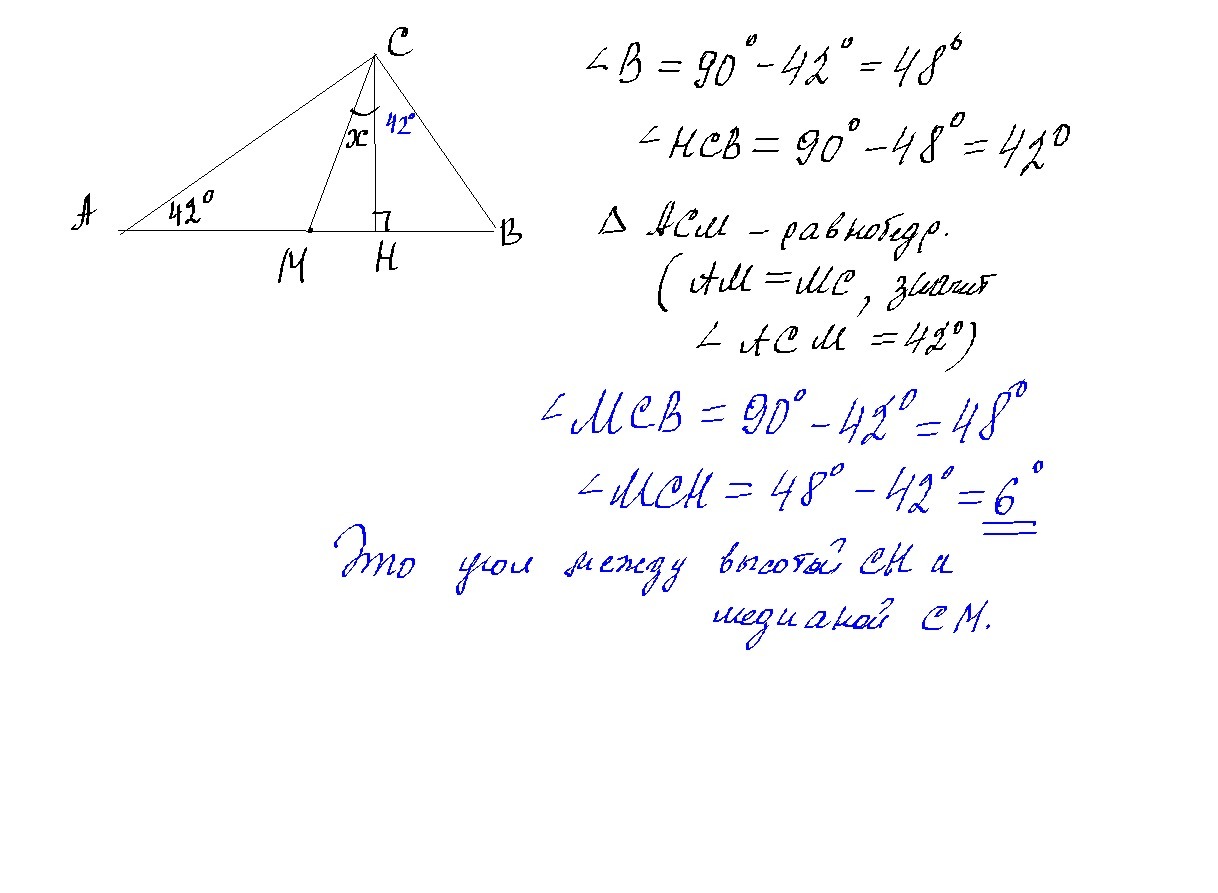 C
x
42°
A
42°
M
H
B
∠B = 90° - 42° = 48°
∠HCB = 90° - 48° = 42°
Δ ACM - равнобедр.
(AM = MC, значит
∠ ACM = 42°)
∠MCB = 90° - 42° = 48°
∠MCH = 48° - 42° = 6°
Это угол между высотой CH и
медианой CM.